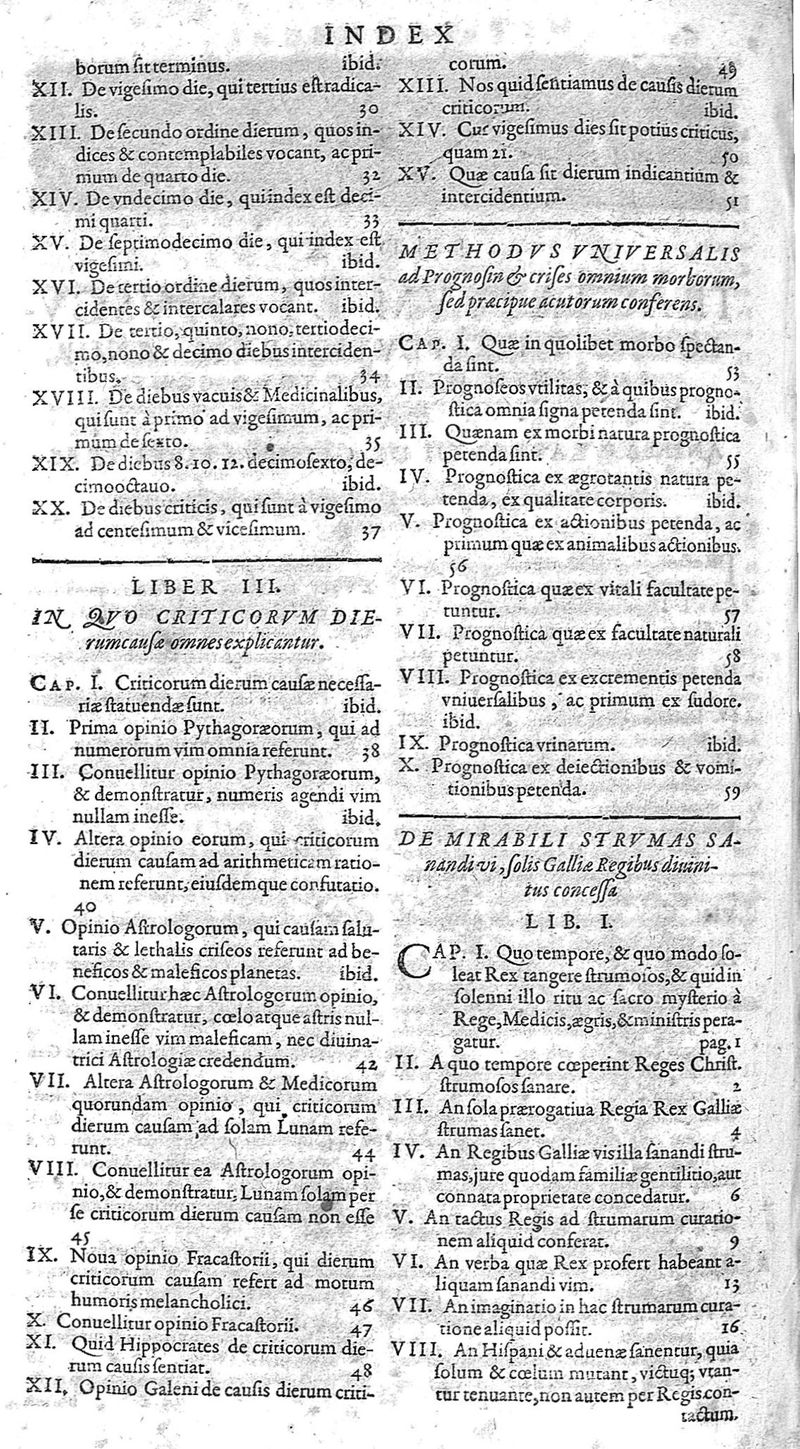 INDEX
borum ſit terminus. ibid.
XII. De vigeſimo die, qui tertius eſt radica-
lis. 30
XIII. De ſecundo ordine dierum, quos in-
dices & contemplabiles vocant, ac pri-
mum de quarto die. 32
XIV. De vndecimo die, qui index eſt deci-
mi quarti. 33
XV. De ſeptimodecimo die, qui index eſt
vigeſimi. ibid.
XVI. De tertio ordine dierum, quos inter-
cidentes & intercalares vocant. ibid.
XVII. De tertio, quinto, nono, tertiodeci-
mo, nono & decimo diebus interciden-
tibus. 34
XVIII. De diebus vacuis & Medicinalibus,
qui ſunt à primo ad vigeſimum, ac pri-
mum de ſexto. 35
XIX. De diebus 8. 10. 12. decimoſexto, de-
cimooctauo. ibid.
XX. De diebus criticis, qui ſunt à vigeſimo
ad centeſimum & viceſimum. 37
LIBER III.
IN QVO CRITICORVM DIE-
rum cauſæ omnes explicantur.
CAP. I. Criticorum dierum cauſæ neceſſa-
riæ ſtatuendæ ſunt. ibid.
II. Prima opinio Pythagoræorum, qui ad
numerorum vim omnia referunt. 38
III. Conuellitur opinio Pythagoræorum,
& demonſtratur, numeris agendi vim
nullam ineſſe. ibid.
IV. Altera opinio eorum, qui criticorum
dierum cauſam ad arithmeticam ratio-
nem referunt, eiuſdemque confutatio.
40
V. Opinio Aſtrologorum, qui cauſam ſalu-
taris & lethalis criſeos referunt ad be-
neficos & maleficos planetas. ibid.
VI. Conuellitur hæc Aſtrologorum opinio,
& demonſtratur, cœlo atque aſtris nul-
lam ineſſe vim maleficam, nec diuina-
trici Aſtrologiæ credendum. 42
VII. Altera Aſtrologorum & Medicorum
quorundam opinio, qui criticorum
dierum cauſam ad ſolam Lunam refe-
runt. 44
VIII. Conuellitur ea Aſtrologorum opi-
nio, & demonſtratur, Lunam ſolam per
ſe criticorum dierum cauſam non eſſe
45
IX. Noua opinio Fracaſtorii, qui dierum
criticorum cauſam refert ad motum
humoris melancholici. 46
X. Conuellitur opinio Fracaſtorii. 47
XI. Quid Hippocrates de criticorum die-
rum cauſis ſentiat. 48
XII. Opinio Galeni de cauſis dierum criti-
corum. 49
XIII. Nos quid ſentiamus de cauſis dierum
criticorum. ibid.
XIV. Cur vigeſimus dies ſit potius criticus,
quam 21. 50
XV. Quæ cauſa ſit dierum indicantium &
intercidentium. 51
METHODVS VNIVERSALIS
ad Prognoſin & criſes omnium morborum,
ſed præcipue acutorum conferens.
CAP. I. Quæ in quolibet morbo ſpectan-
da ſint. 53
II. Prognoſeos vtilitas, & à quibus progno-
ſtica omnia ſigna petenda ſint. ibid.
III. Quænam ex morbi natura prognoſtica
petenda ſint. 55
IV. Prognoſtica ex ægrotantis natura pe-
tenda, ex qualitate corporis. ibid.
V. Prognoſtica ex actionibus petenda, ac
primum quæ ex animalibus actionibus.
56
VI. Prognoſtica quæ ex vitali facultate pe-
tuntur. 57
VII. Prognoſtica quæ ex facultate naturali
petuntur. 58
VIII. Prognoſtica ex excrementis petenda
vniuerſalibus, ac primum ex ſudore.
ibid.
IX. Prognoſtica vrinarum. ibid.
X. Prognoſtica ex deiectionibus & vomi-
tionibus petenda. 59
DE MIRABILI STRVMAS SA-
nandi vi, ſolis Galliæ Regibus diuini-
tus conceſſa
LIB. I.
CAP. I. Quo tempore, & quo modo ſo-
leat Rex tangere ſtrumoſos, & quid in
ſolenni illo ritu ac ſacro myſterio à
Rege, Medicis, ægris, & miniſtris pera-
gatur. pag. 1
II. A quo tempore cœperint Reges Chriſt.
ſtrumoſos ſanare. 2
III. An ſola prærogatiua Regia Rex Galliæ
ſtrumas ſanet. 4
IV. An Regibus Galliæ vis illa ſanandi ſtru-
mas, jure quodam familiæ gentilitio, aut
connata proprietate concedatur. 6
V. An tactus Regis ad ſtrumarum curatio-
nem aliquid conferat. 9
VI. An verba quæ Rex profert habeant a-
liquam ſanandi vim. 13
VII. An imaginatio in hac ſtrumarum cura-
tione aliquid poſſit. 16
VIII. An Hiſpani & aduenæ ſanentur, quia
ſolum & cœlum mutant, victuq; vtan-
tur tenuante, non autem per Regis con-
tactum.